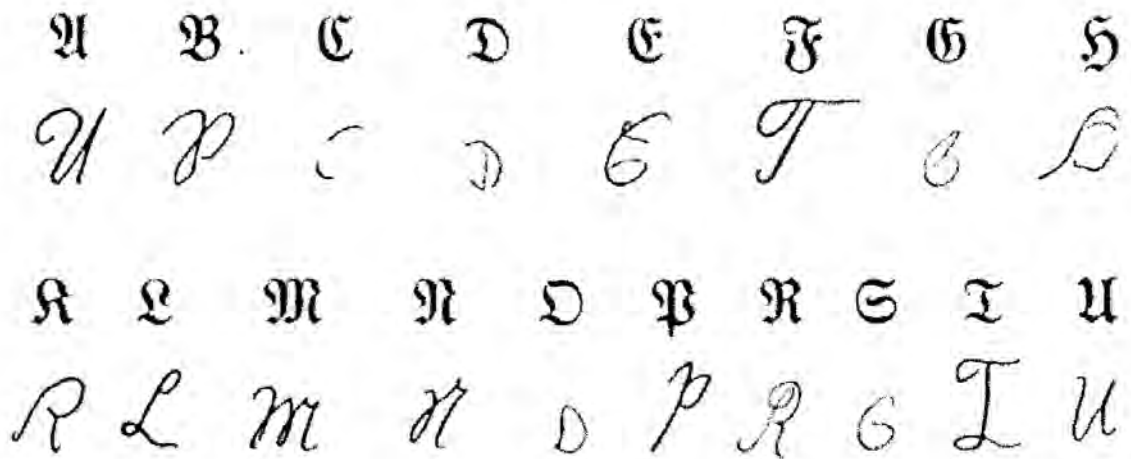 𝔄 𝔅 ℭ 𝔇 𝔈 𝔉 𝔊 ℌ
U P C D E T G
𝔎 𝔏 𝔐 𝔑 𝔒 𝔓 ℜ 𝔖 𝔗 𝔘
R L M N D P R G T U